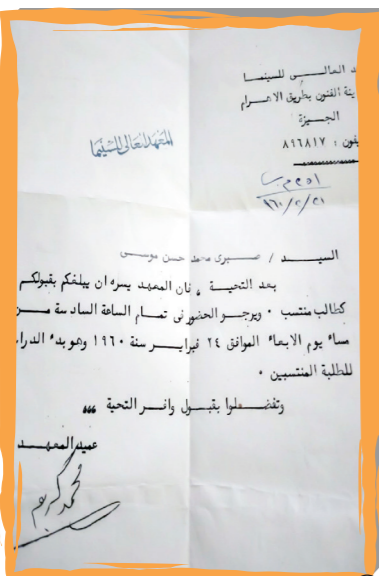 ـد العالــــى للسينمـا
ينة الفنون بطريق الاهـرام
الجـيزة
يفون : ٨٩٦٨١٧
المعهد العالى للسينما
٩٦٠/٢/٢١
السيــــد / صبرى محمد حسن موسى
بعد التحية ، فان المعهد يسره ان يبلغكم بقبولكم
كطالب منتسب ٠ ويرجـو الحضور فى تمـام الساعة السادسة مـن
مساء يوم الاربعاء الموافق ٢٤ فبرايـر سنة ١٩٦٠ وهو بدء الدرا
للطلبة المنتسبين ٠
وتفضـلوا بقبـول وافـر التحية ،،،
عميد المعهــد
محمد كريم